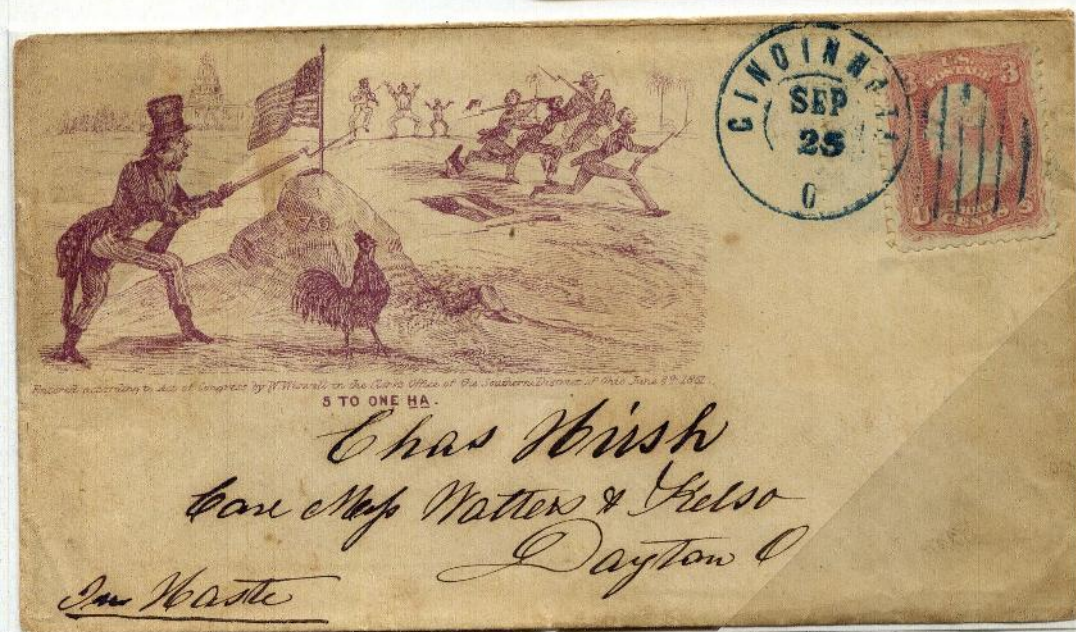 CINCINNATI
SEP
25
O
U.S.
POSTAGE
3 3
U S
CENTS
76
Entered according to Act of Congress by W Wiswell in the Clerk's Office of the Southern District of Ohio June 8th 1861.
5 TO ONE HA.
Chas Hirsh
Care Mess Watters & Kelso
Dayton O
In Haste